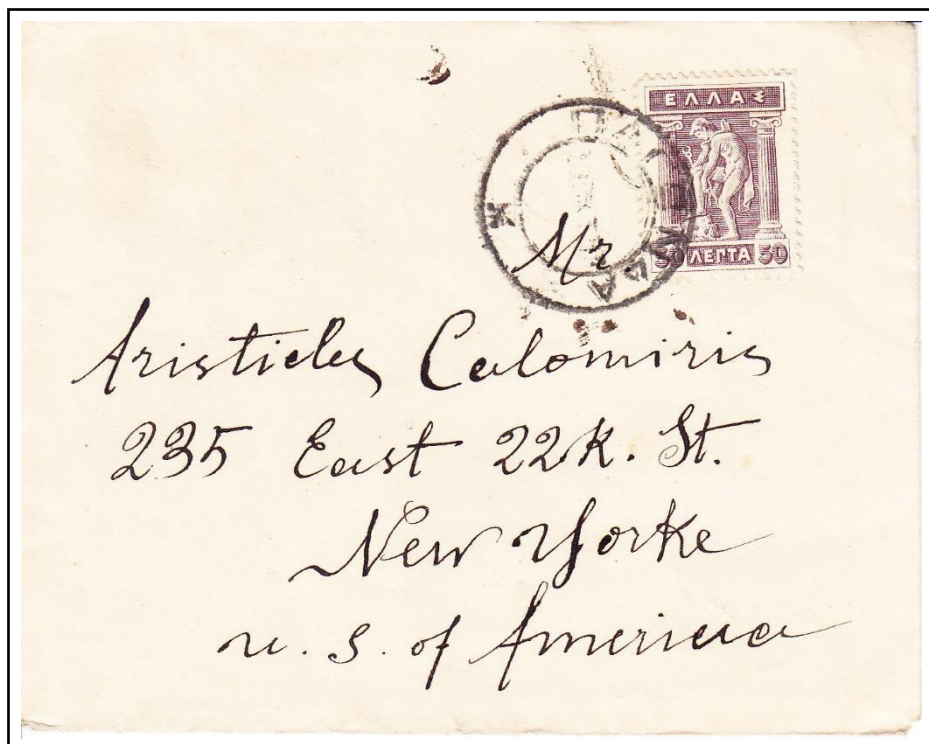 ΕΛΛΑΣ
50 ΛΕΠΤΑ 50
Mr
Aristides Calomiris
235 East 22K. St.
New Yorke
u. S. of America